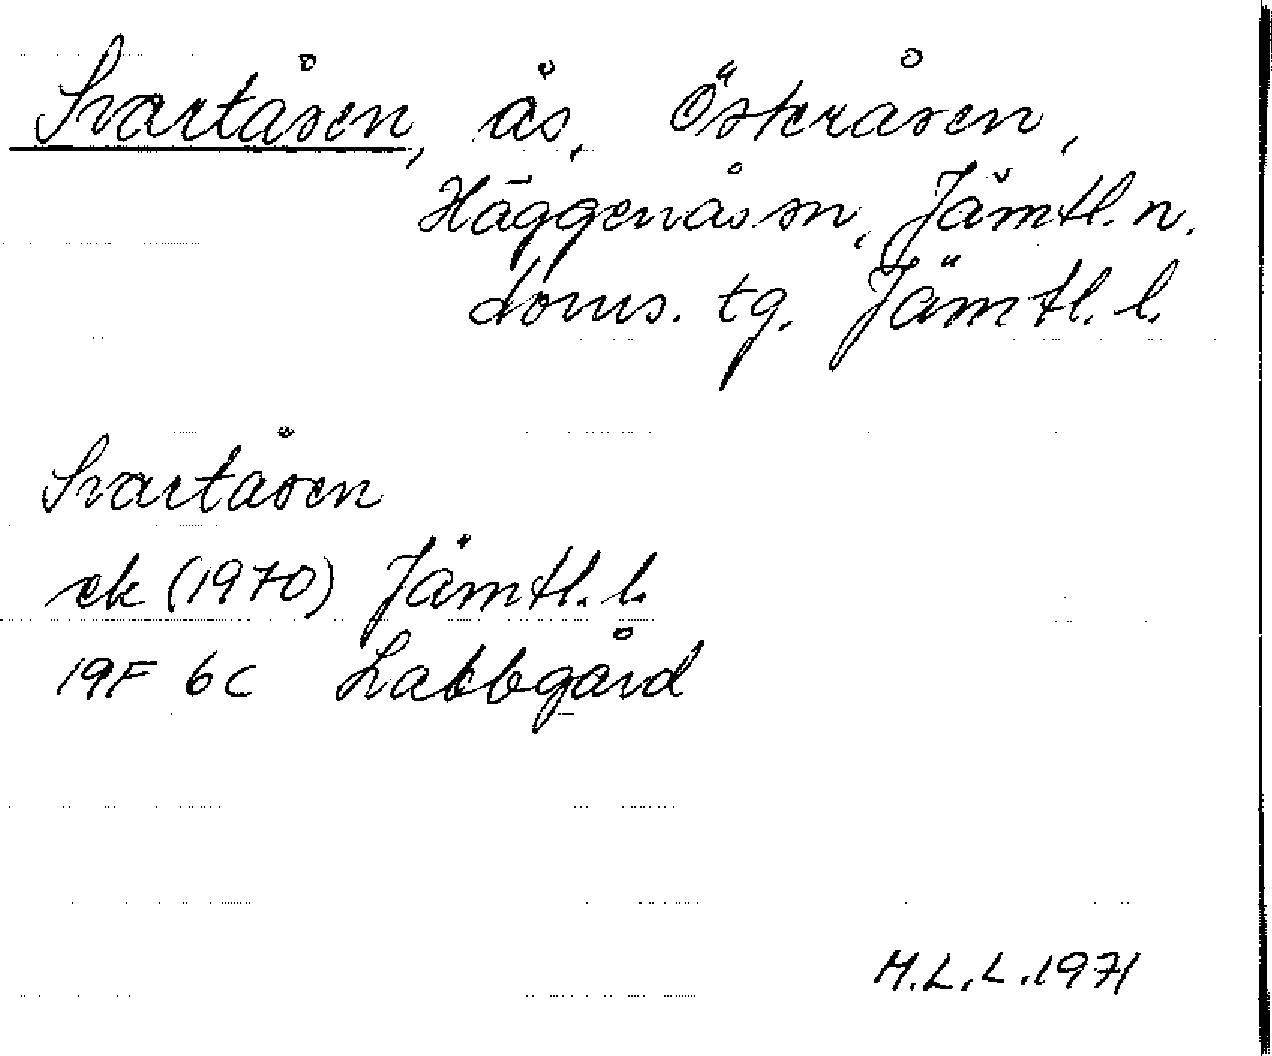 Svartåsen, ås, Österåsen,
Häggenås sn, Jämtl. n.
doms. tg. Jämtl. l.
Svartåsen
ek (1970) Jämtl. l.
19F 6c Labbgård
M.L.L. 1971